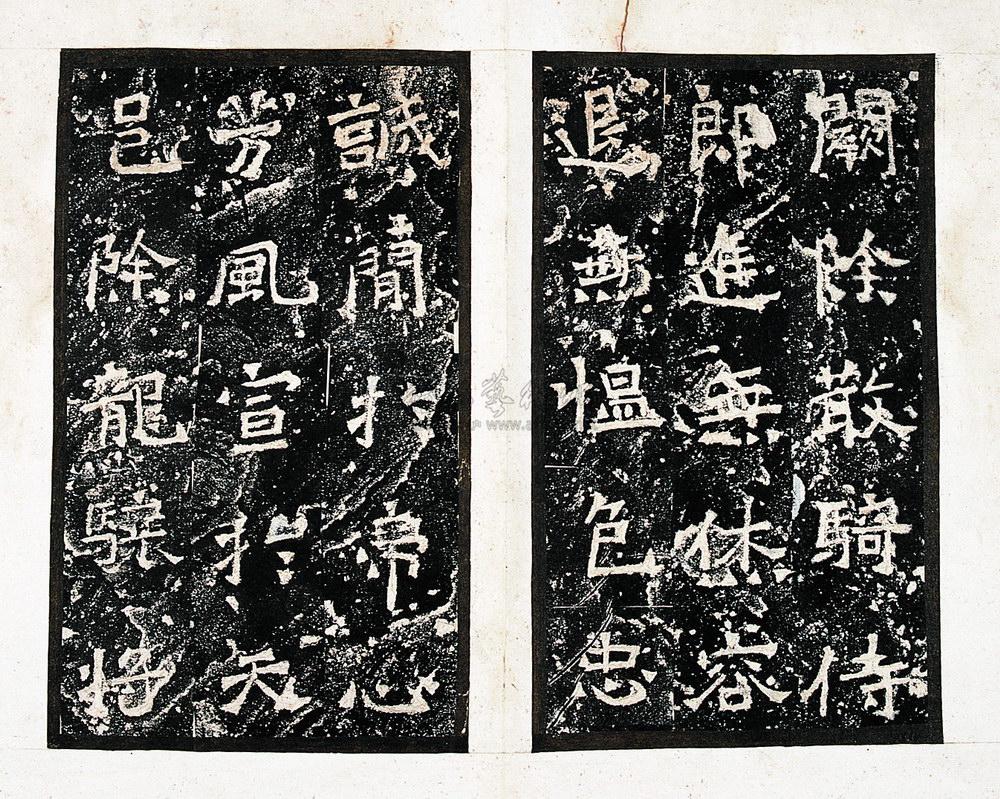 闕除散騎侍
郎進無休容
退無愠色忠
誠簡於帝心
芳風宣於天
邑除龍驤將